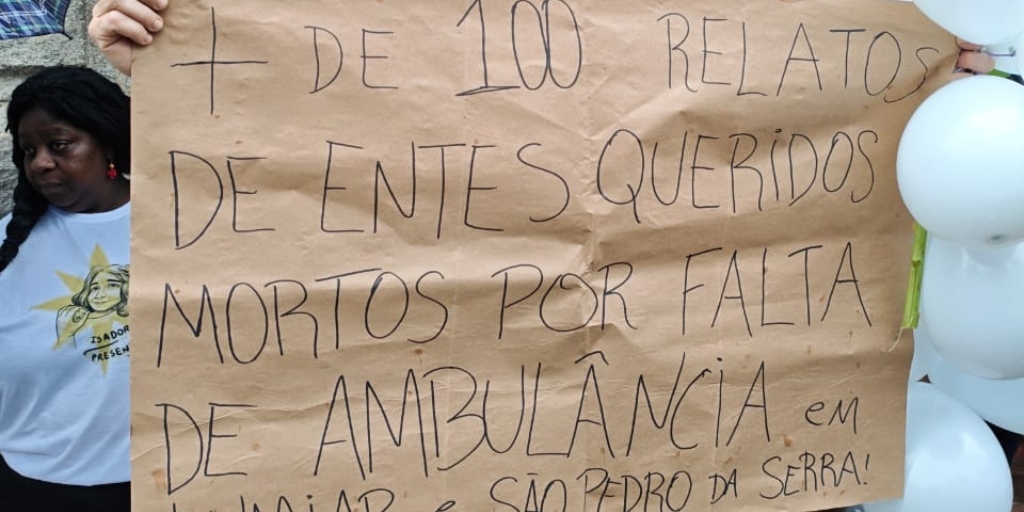 + DE 100 RELATOS
DE ENTES QUERIDOS
MORTOS POR FALTA
DE AMBULÂNCIA em
e SÃO PEDRO DA SERRA!
ISADOR
PRESEN